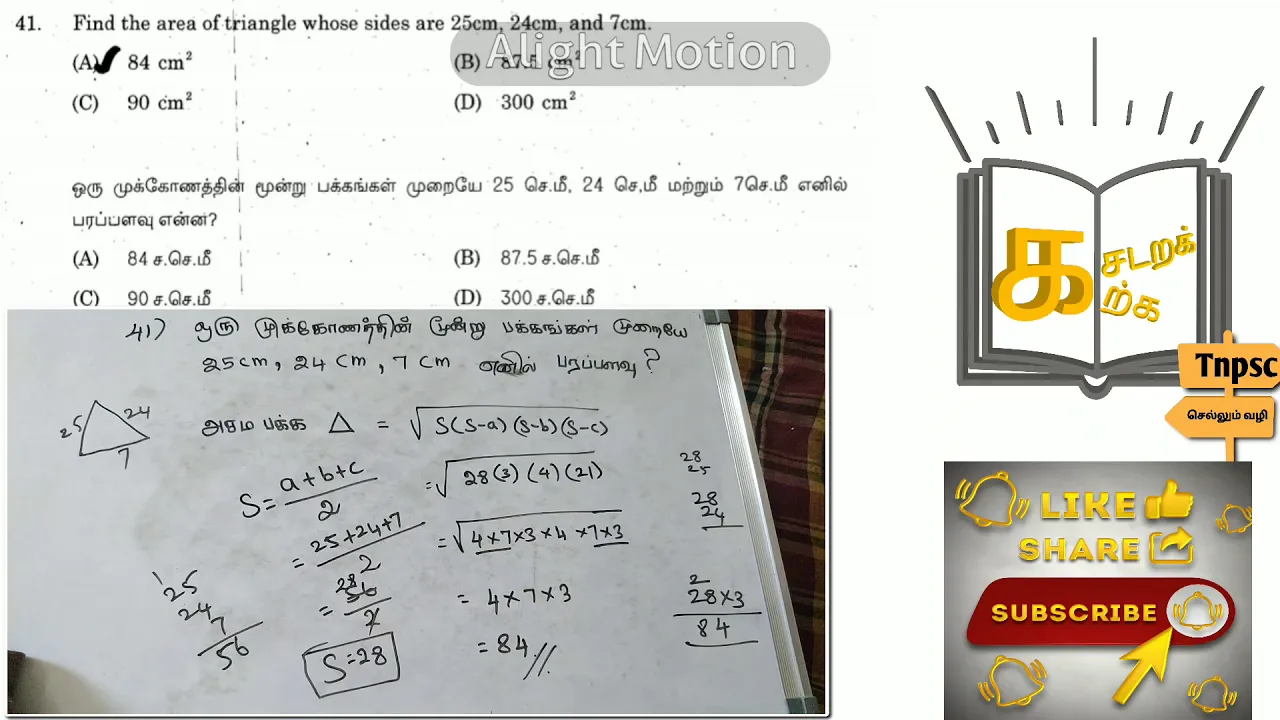 41. Find the area of triangle whose sides are 25cm, 24cm, and 7cm.
Alight Motion
(A) 84 cm² (B) 87.5 cm²
(C) 90 cm² (D) 300 cm²
ஒரு முக்கோணத்தின் மூன்று பக்கங்கள் முறையே 25 செ.மீ, 24 செ,மீ மற்றும் 7செ.மீ எனில்
பரப்பளவு என்ன?
(A) 84 ச.செ.மீ (B) 87.5 ச.செ.மீ
(C) 90 ச.செ.மீ (D) 300 ச.செ.மீ
41) ஒரு முக்கோணத்தின் மூன்று பக்கங்கள் முறையே
25cm, 24cm, 7cm எனில் பரப்பளவு?
25 24 7
அசம பக்க △ = √S(S-a)(S-b)(S-c)
S = a+b+c / 2
= √28(3)(4)(21)
= 25+24+7 / 2
= √4×7×3×4×7×3
= 28 56 / 2
= 4×7×3
S=28
= 84 //
25
24
7
56
28
25
28
24
2
28×3
84
க
சடறக்
ற்க
Tnpsc
செல்லும் வழி
LIKE
SHARE
SUBSCRIBE